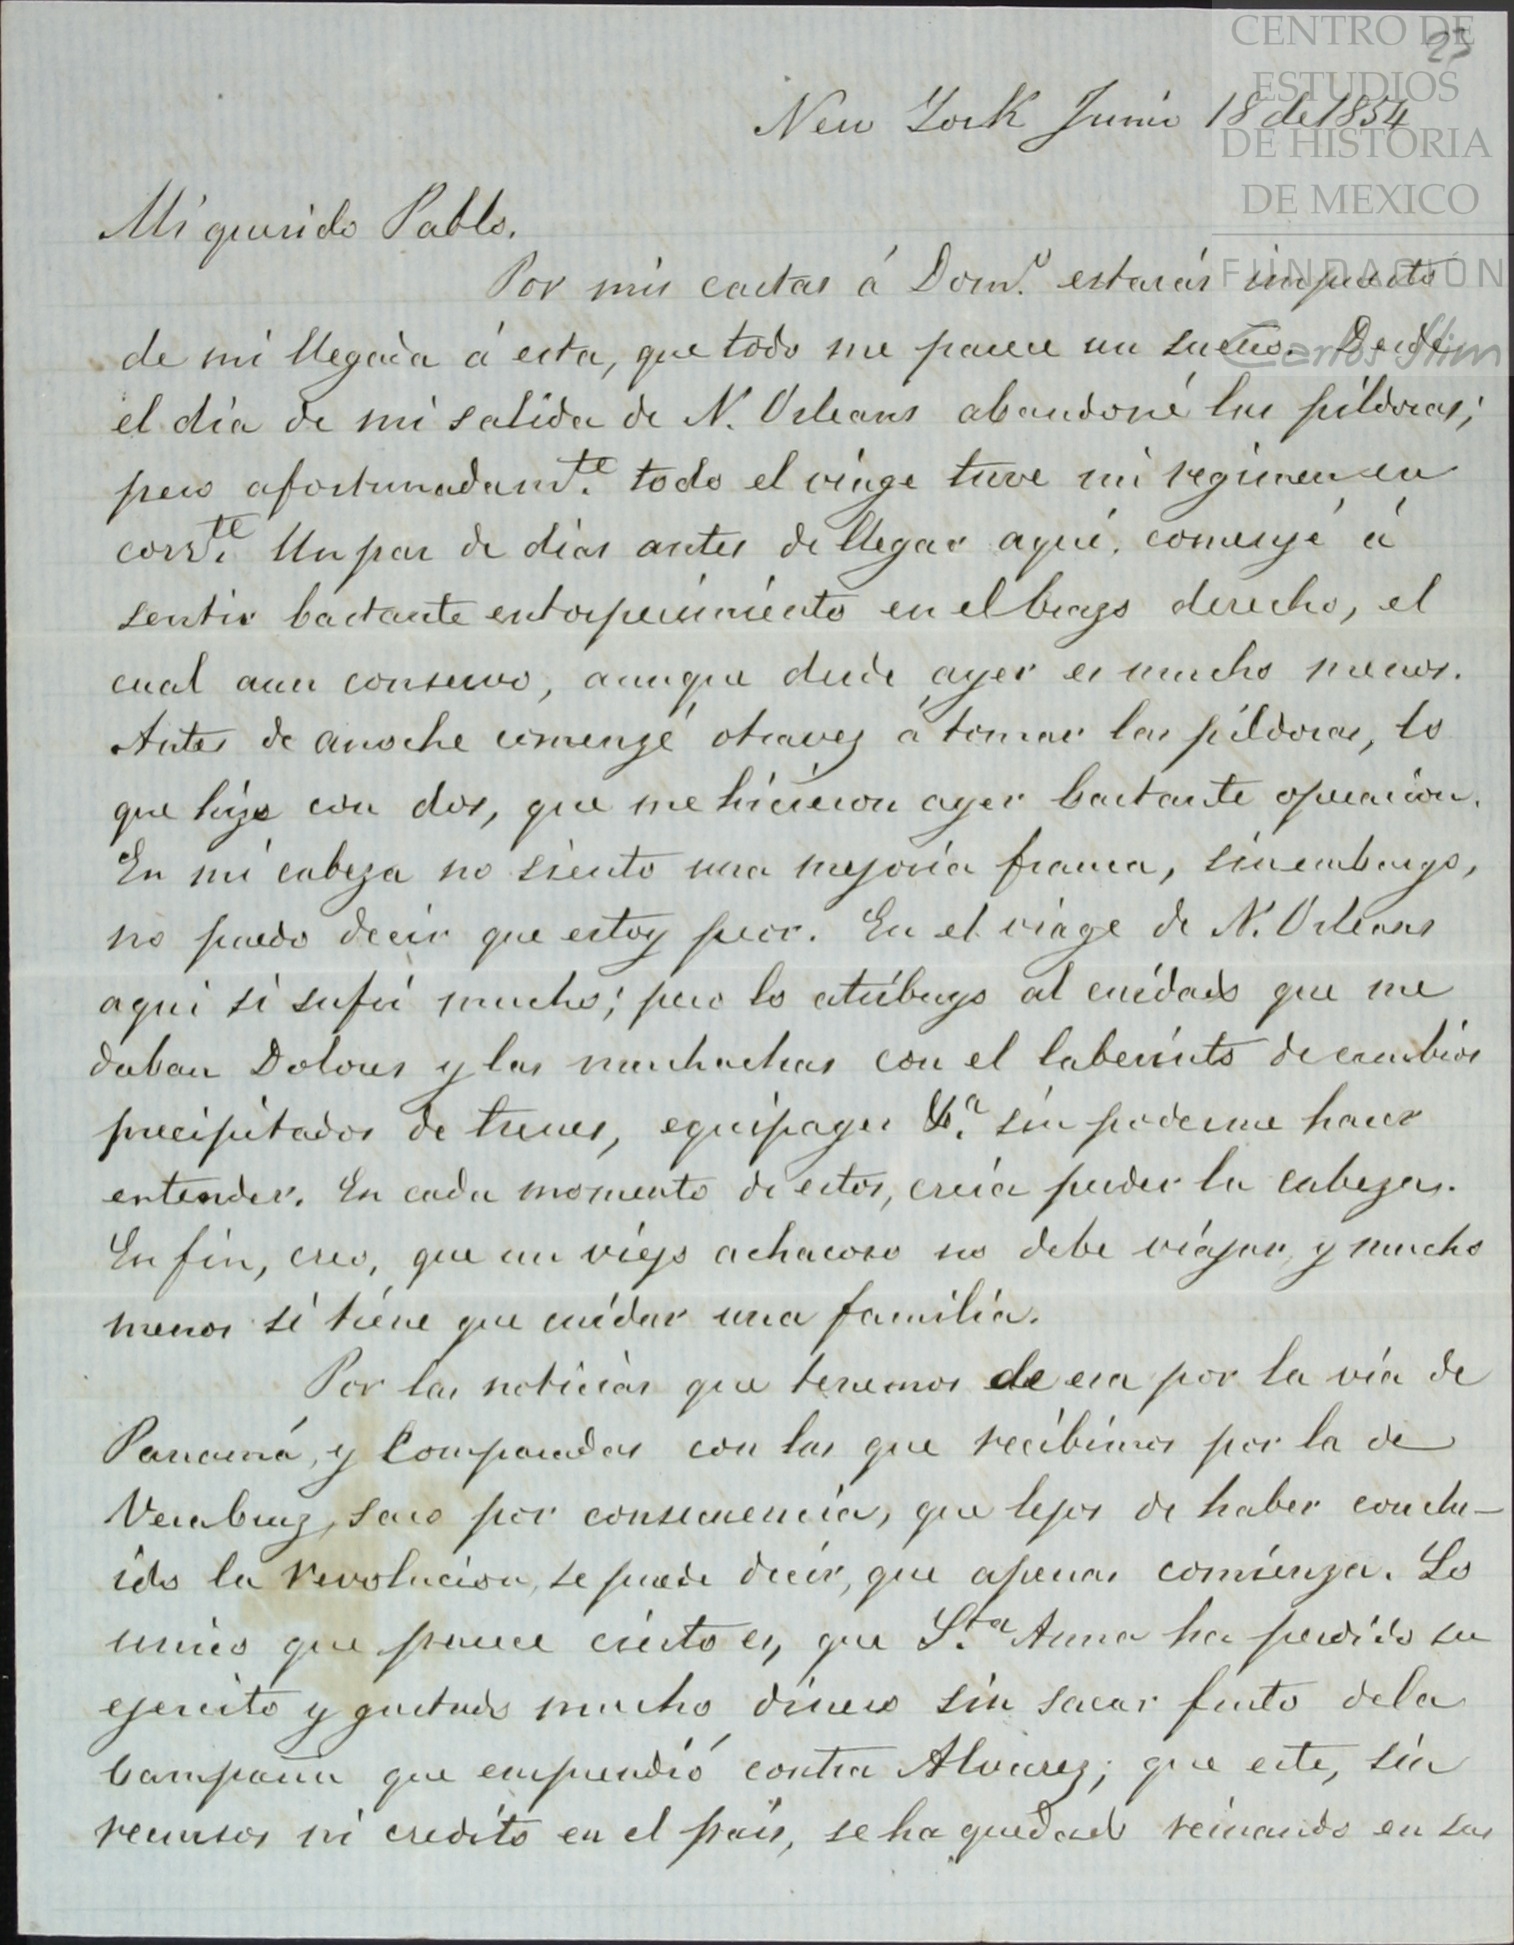 CENTRO DE
ESTUDIOS
DE HISTORIA
DE MEXICO
FUNDACIÓN
Carlos Slim
23
New York Junio 18 de 1854
Mi querido Pablo.
Por mis cartas á Dom.º estarás impuesto
de mi llegada á esta, que todo me parece un sueño. Desde
el día de mi salida de N. Orleans abandoné las píldoras;
pero afortunadam.te todo el viage tuve mi regimen en
corr.te Un par de dias antes de llegar aquí, comenzé á
sentir bastante entorpecimiento en el brazo derecho, el
cual aun conservo, aunque desde ayer es mucho menos.
Antes de anoche comenzé otravez á tomar las píldoras, lo
que hize con dos, que me hicieron ayer bastante operacion.
En mi cabeza no siento una mejoria franca, sinembargo,
no puedo decir que estoy peor. En el viage de N. Orleans
aqui si sufrí mucho; pero lo atribuyo al cuidado que me
daban Dolores y las muchachas con el laberinto de cambios
precipitados de trenes, equipages &.a sin poderme hacer
entender. En cada momento de estos, creia perder la cabeza.
En fin, creo, que un viejo achacoso no debe viajar, y mucho
menos si tiene que cuidar una familia.
Por las noticias que tenemos de esa por la via de
Panamá, y comparadas con las que recibimos por la de
Veracruz, saco por consecuencia, que lejos de haber conclu-
ido la revolucion, se puede decir, que apenas comienza. Lo
unico que parece cierto es, que S.ta Anna ha perdido su
ejercito y gastado mucho dinero sin sacar fruto dela
campaña que emprendió contra Alvarez; que este, sin
recursos ni credito en el país, se ha quedado reinando en sus